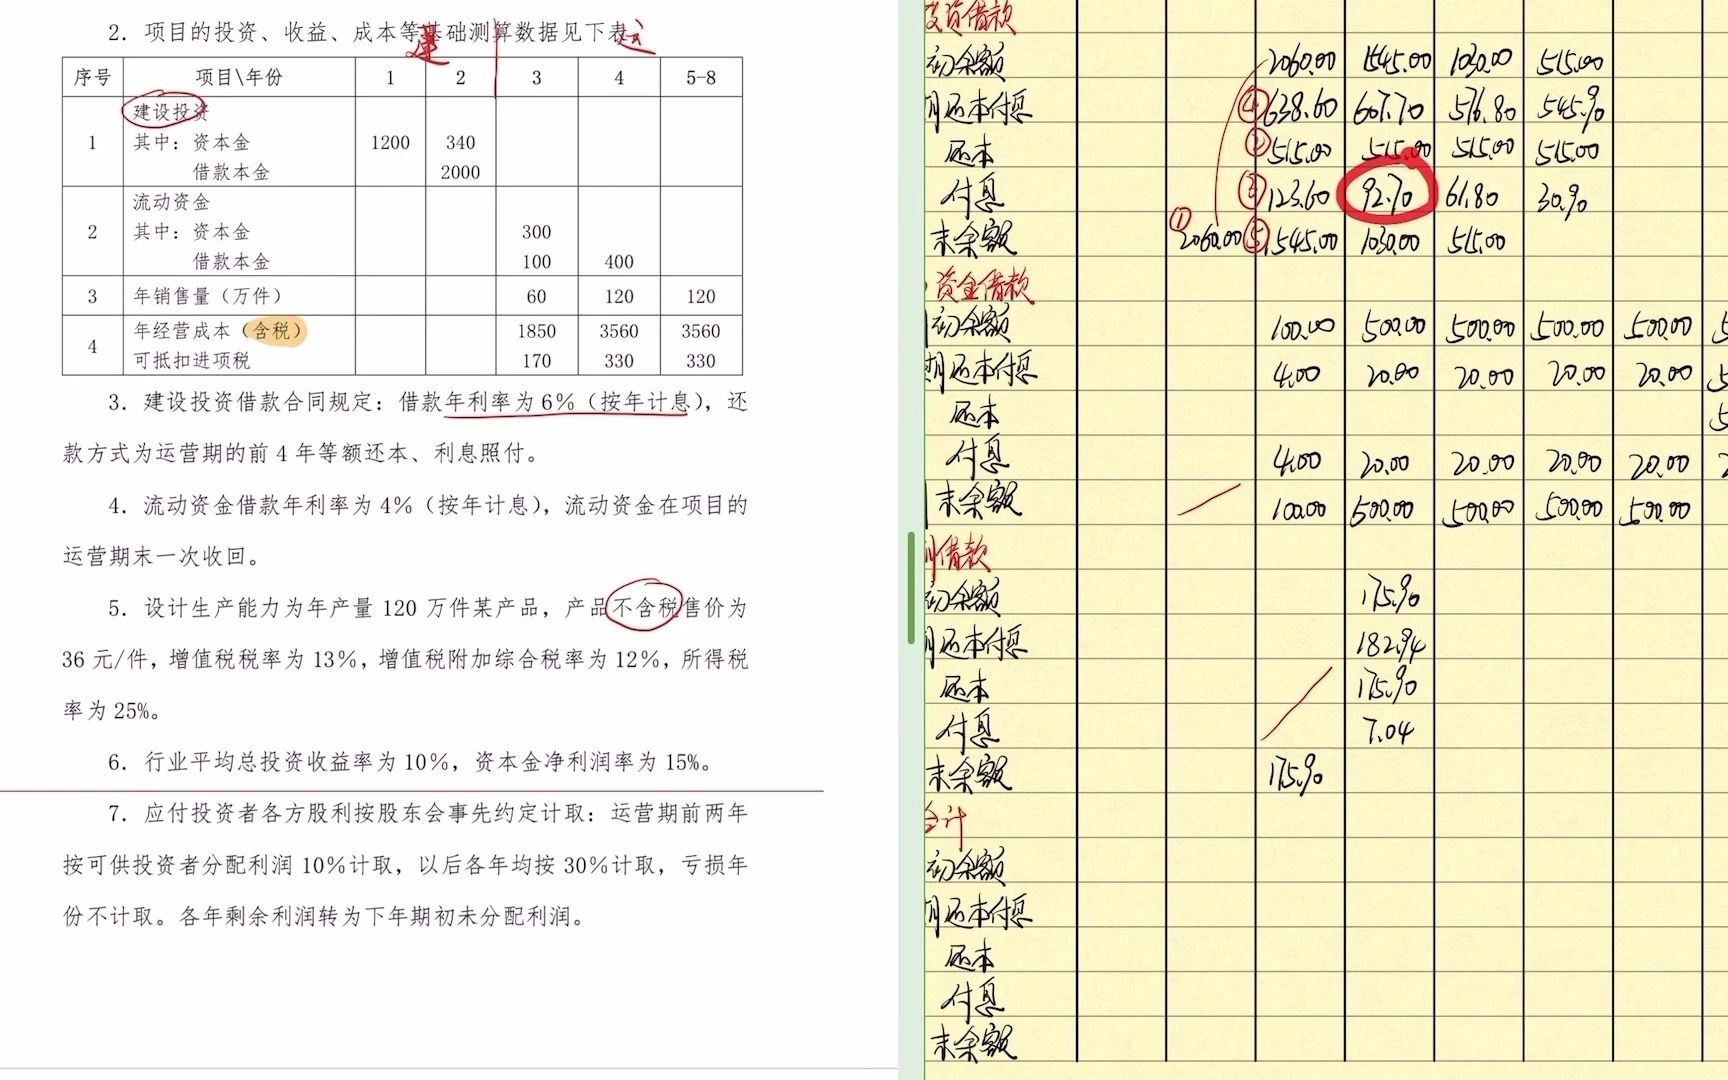 2. 项目的投资、收益、成本等基础测算数据见下表
建 运
序号 项目\年份 1 2 3 4 5-8
1 建设投资
其中：资本金 1200 340
借款本金 2000
2 流动资金
其中：资本金 300
借款本金 100 400
3 年销售量（万件） 60 120 120
4 年经营成本（含税） 1850 3560 3560
可抵扣进项税 170 330 330
3. 建设投资借款合同规定：借款年利率为6%（按年计息），还
款方式为运营期的前4年等额还本、利息照付。
4. 流动资金借款年利率为4%（按年计息），流动资金在项目的
运营期末一次收回。
5. 设计生产能力为年产量120万件某产品，产品不含税售价为
36元/件，增值税税率为13%，增值税附加综合税率为12%，所得税
率为25%。
6. 行业平均总投资收益率为10%，资本金净利润率为15%。
7. 应付投资者各方股利按股东会事先约定计取：运营期前两年
按可供投资者分配利润10%计取，以后各年均按30%计取，亏损年
份不计取。各年剩余利润转为下年期初未分配利润。
投资借款
初余额 2060.00 1545.00 1030.00 515.00
期还本付息 ④ 638.60 607.70 576.80 545.90
还本 ② 515.00 515.00 515.00 515.00
付息 ③ 123.60 92.70 61.80 30.90
末余额 ① 2060.00 ⑤ 1545.00 1030.00 515.00
资金借款
初余额 100.00 500.00 500.00 500.00 500.00 5
期还本付息 4.00 20.00 20.00 20.00 20.00 5
还本 5
付息 4.00 20.00 20.00 20.00 20.00 2
末余额 100.00 500.00 500.00 500.00 500.00
借款
初余额 175.90
期还本付息 182.94
还本 175.90
付息 7.04
末余额 175.90
合计
初余额
期还本付息
还本
付息
末余额